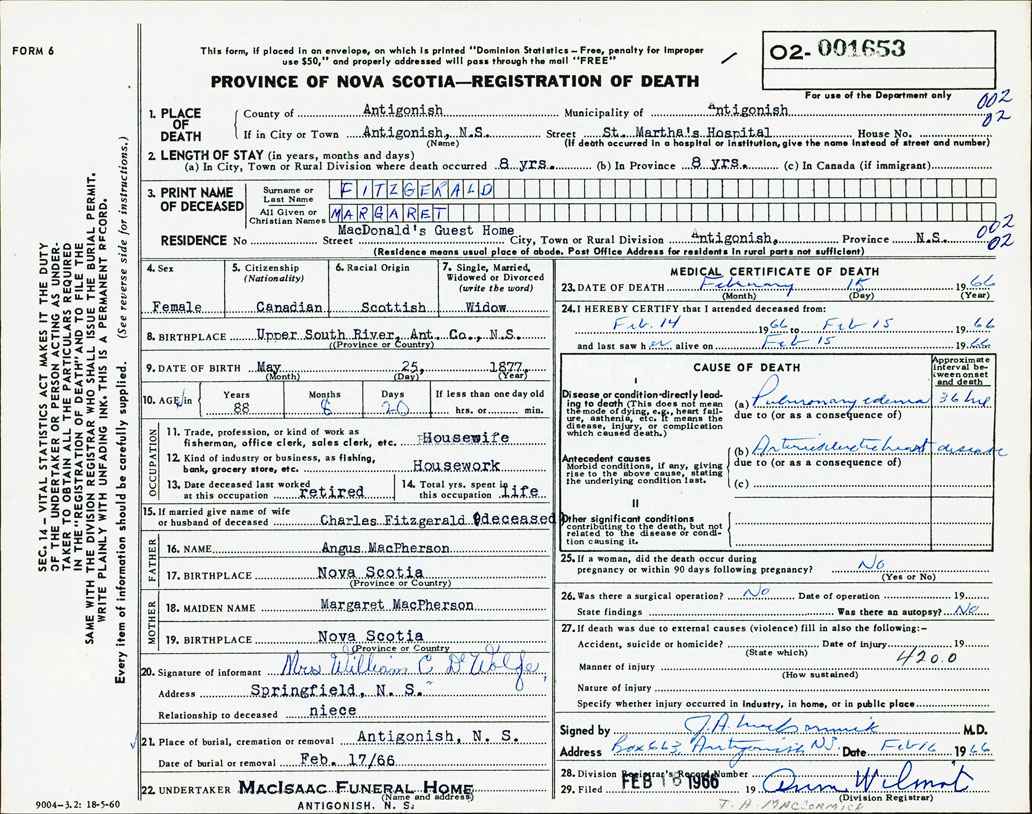 FORM 6
This form, if placed in an envelope, on which is printed "Dominion Statistics – Free, penalty for improper
use $50," and properly addressed will pass through the mail "FREE"
O2- 001653
For use of the Department only
PROVINCE OF NOVA SCOTIA—REGISTRATION OF DEATH
002
02
1. PLACE OF DEATH
County of Antigonish Municipality of Antigonish
If in City or Town Antigonish, N.S. Street St. Martha's Hospital House No.
(Name) (If death occurred in a hospital or institution, give the name instead of street and number)
2. LENGTH OF STAY (in years, months and days)
(a) In City, Town or Rural Division where death occurred 8 yrs. (b) In Province 8 yrs. (c) In Canada (if immigrant)
3. PRINT NAME OF DECEASED
Surname or Last Name FITZGERALD
All Given or Christian Names MARGARET
002
02
MacDonald's Guest Home
RESIDENCE No Street City, Town or Rural Division Antigonish, Province N.S.
(Residence means usual place of abode. Post Office Address for residents in rural parts not sufficient)
4. Sex
Female
5. Citizenship
(Nationality)
Canadian
6. Racial Origin
Scottish
7. Single, Married, Widowed or Divorced
(write the word)
Widow
8. BIRTHPLACE Upper South River, Ant. Co., N.S.
(Province or Country)
9. DATE OF BIRTH May 25, 1877
(Month) (Day) (Year)
10. AGE in Years 88 Months 8 Days 20 If less than one day old hrs. or min.
OCCUPATION
11. Trade, profession, or kind of work as
fisherman, office clerk, sales clerk, etc. Housewife
12. Kind of industry or business, as fishing,
bank, grocery store, etc. Housework
13. Date deceased last worked
at this occupation retired
14. Total yrs. spent in
this occupation life
15. If married give name of wife
or husband of deceased Charles Fitzgerald (deceased)
FATHER
16. NAME Angus MacPherson
17. BIRTHPLACE Nova Scotia
(Province or Country)
MOTHER
18. MAIDEN NAME Margaret MacPherson
19. BIRTHPLACE Nova Scotia
(Province or Country)
20. Signature of informant Mrs William C DeWolfe,
Address Springfield, N. S.
Relationship to deceased niece
21. Place of burial, cremation or removal Antigonish, N. S.
Date of burial or removal Feb. 17/66
22. UNDERTAKER MACISAAC FUNERAL HOME
(Name and address)
ANTIGONISH, N. S.
MEDICAL CERTIFICATE OF DEATH
23. DATE OF DEATH February 15 1966
(Month) (Day) (Year)
24. I HEREBY CERTIFY that I attended deceased from:
Feb. 14 1966 to Feb 15 1966
and last saw her alive on Feb 15 1966
CAUSE OF DEATH
Approximate interval between onset and death
I
Disease or condition directly leading to death (This does not mean the mode of dying, e.g., heart failure, asthenia, etc. It means the disease, injury, or complication which caused death.)
(a) Pulmonary edema 36 hrs
due to (or as a consequence of)
Antecedent causes
Morbid conditions, if any, giving rise to the above cause, stating the underlying condition last.
(b) Arteriosclerotic heart disease
due to (or as a consequence of)
(c)
II
Other significant conditions
contributing to the death, but not related to the disease or condition causing it.
25. If a woman, did the death occur during
pregnancy or within 90 days following pregnancy? No
(Yes or No)
26. Was there a surgical operation? No Date of operation 19
State findings Was there an autopsy? No
27. If death was due to external causes (violence) fill in also the following:–
Accident, suicide or homicide? Date of injury 19
(State which)
420.0
Manner of injury
(How sustained)
Nature of injury
Specify whether injury occurred in industry, in home, or in public place
Signed by J.A. MacCormick M.D.
Address Box 663 Antigonish NS. Date Feb 16 1966
28. Division Registrar's Record Number
29. Filed FEB 16 1966 19
Wilmot
(Division Registrar)
J. A. MACCORMICK
9004-3.2: 18-5-60
SEC. 14 – VITAL STATISTICS ACT MAKES IT THE DUTY
OF THE UNDERTAKER OR PERSON ACTING AS UNDERTAKER TO OBTAIN ALL THE PARTICULARS REQUIRED
IN THE "REGISTRATION OF DEATH" AND TO FILE THE
SAME WITH THE DIVISION REGISTRAR WHO SHALL ISSUE THE BURIAL PERMIT.
WRITE PLAINLY WITH UNFADING INK. THIS IS A PERMANENT RECORD.
Every item of information should be carefully supplied. (See reverse side for instructions.)